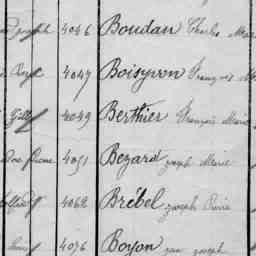 Joseph 4046 Boudan Charles Marie
4047 Boisyvon François M
4049 Berthier François Marie
Pierre 4051 Bezard Joseph Marie
4062 Brébel Joseph Pierre
4076 Boyon Jean Joseph